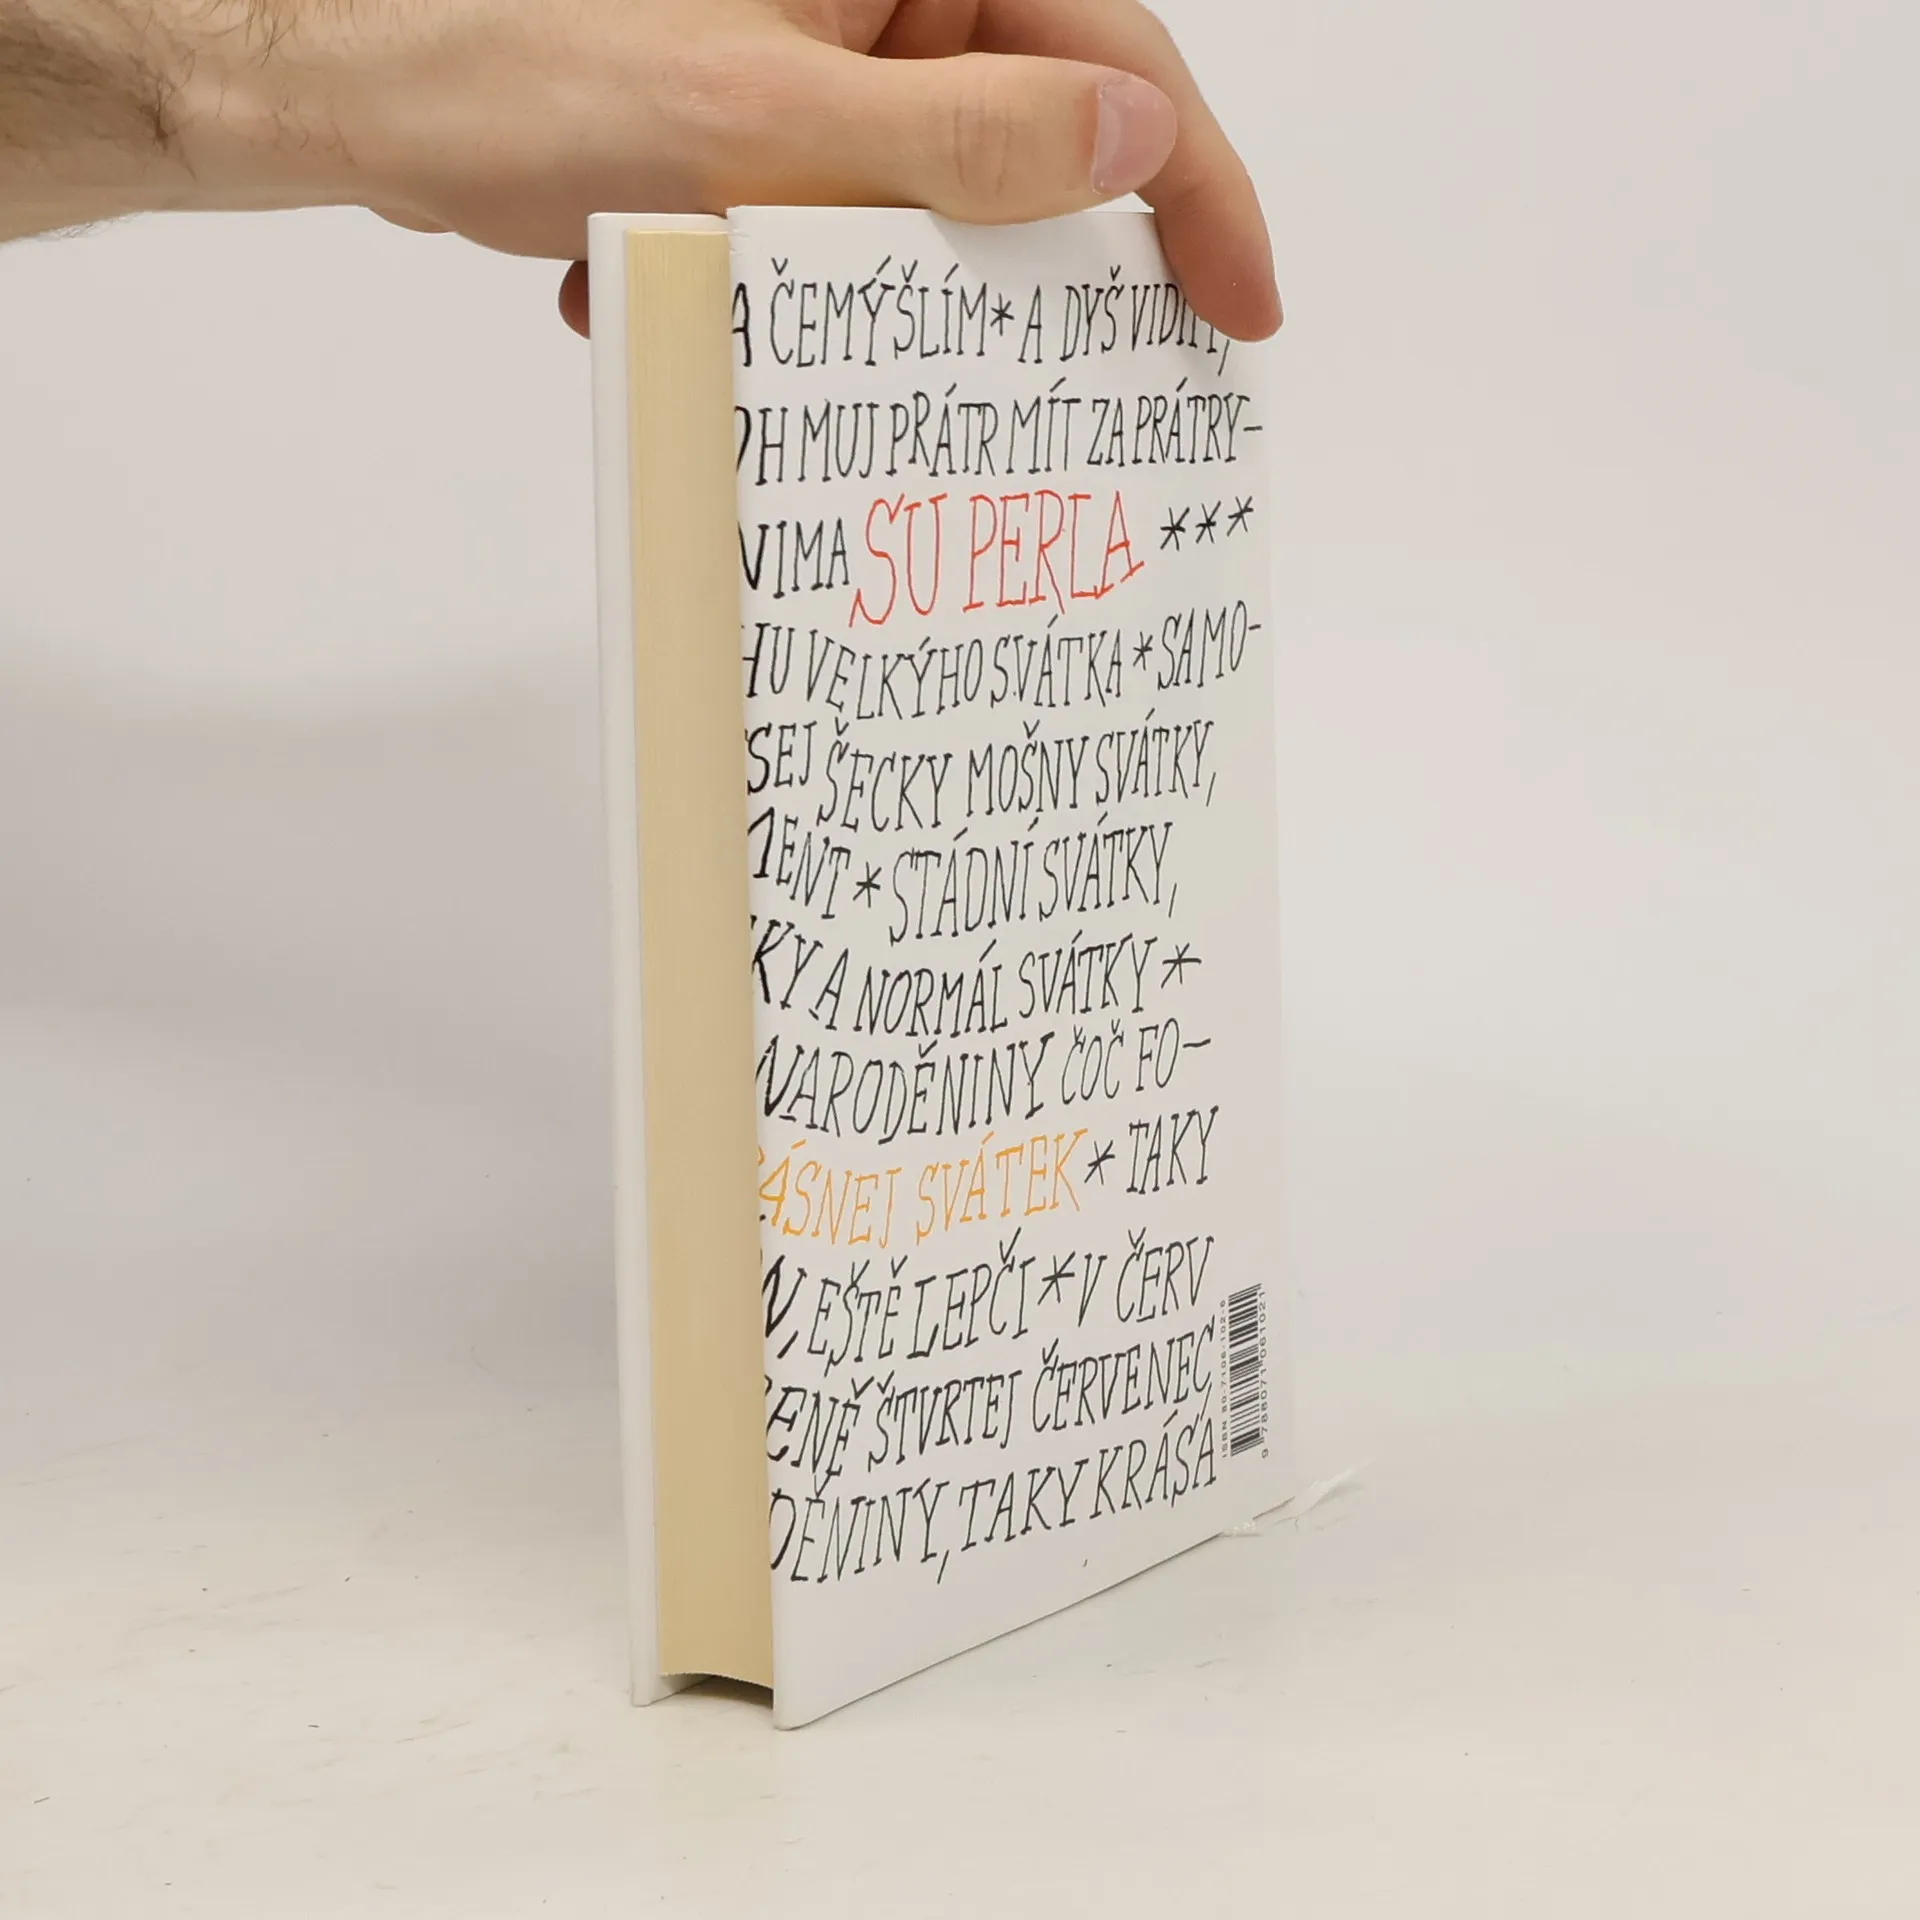 A ČEMÝŠLÍM * A DYŠ
H MUJ PŘÁTR MÍT ZA PRÁTRY-
VIMA SU PERLA ***
HU VELKÝHO SVÁTKA * SAMO-
SEJ ŠECKY MOŠNY SVÁTKY,
MENT * STÁDNÍ SVÁTKY,
KY A NORMÁL SVÁTKY *
NARODĚNINY ČOČ FO-
ÁSNEJ SVÁTEK * TAKY
N, EŠTĚ LEPČI * V ČERV
ENĚ ŠTVRTEJ ČERVENEC,
DĚNINY, TAKY KRÁSA
ISBN 80-7106-102-6
9 788071 061021